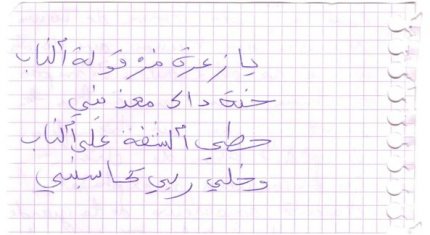 يا زعرة مزقولة ألناب
خنة داك معذبني
حطي ألشفة على ألناب
وخلي ربي يحاسبني